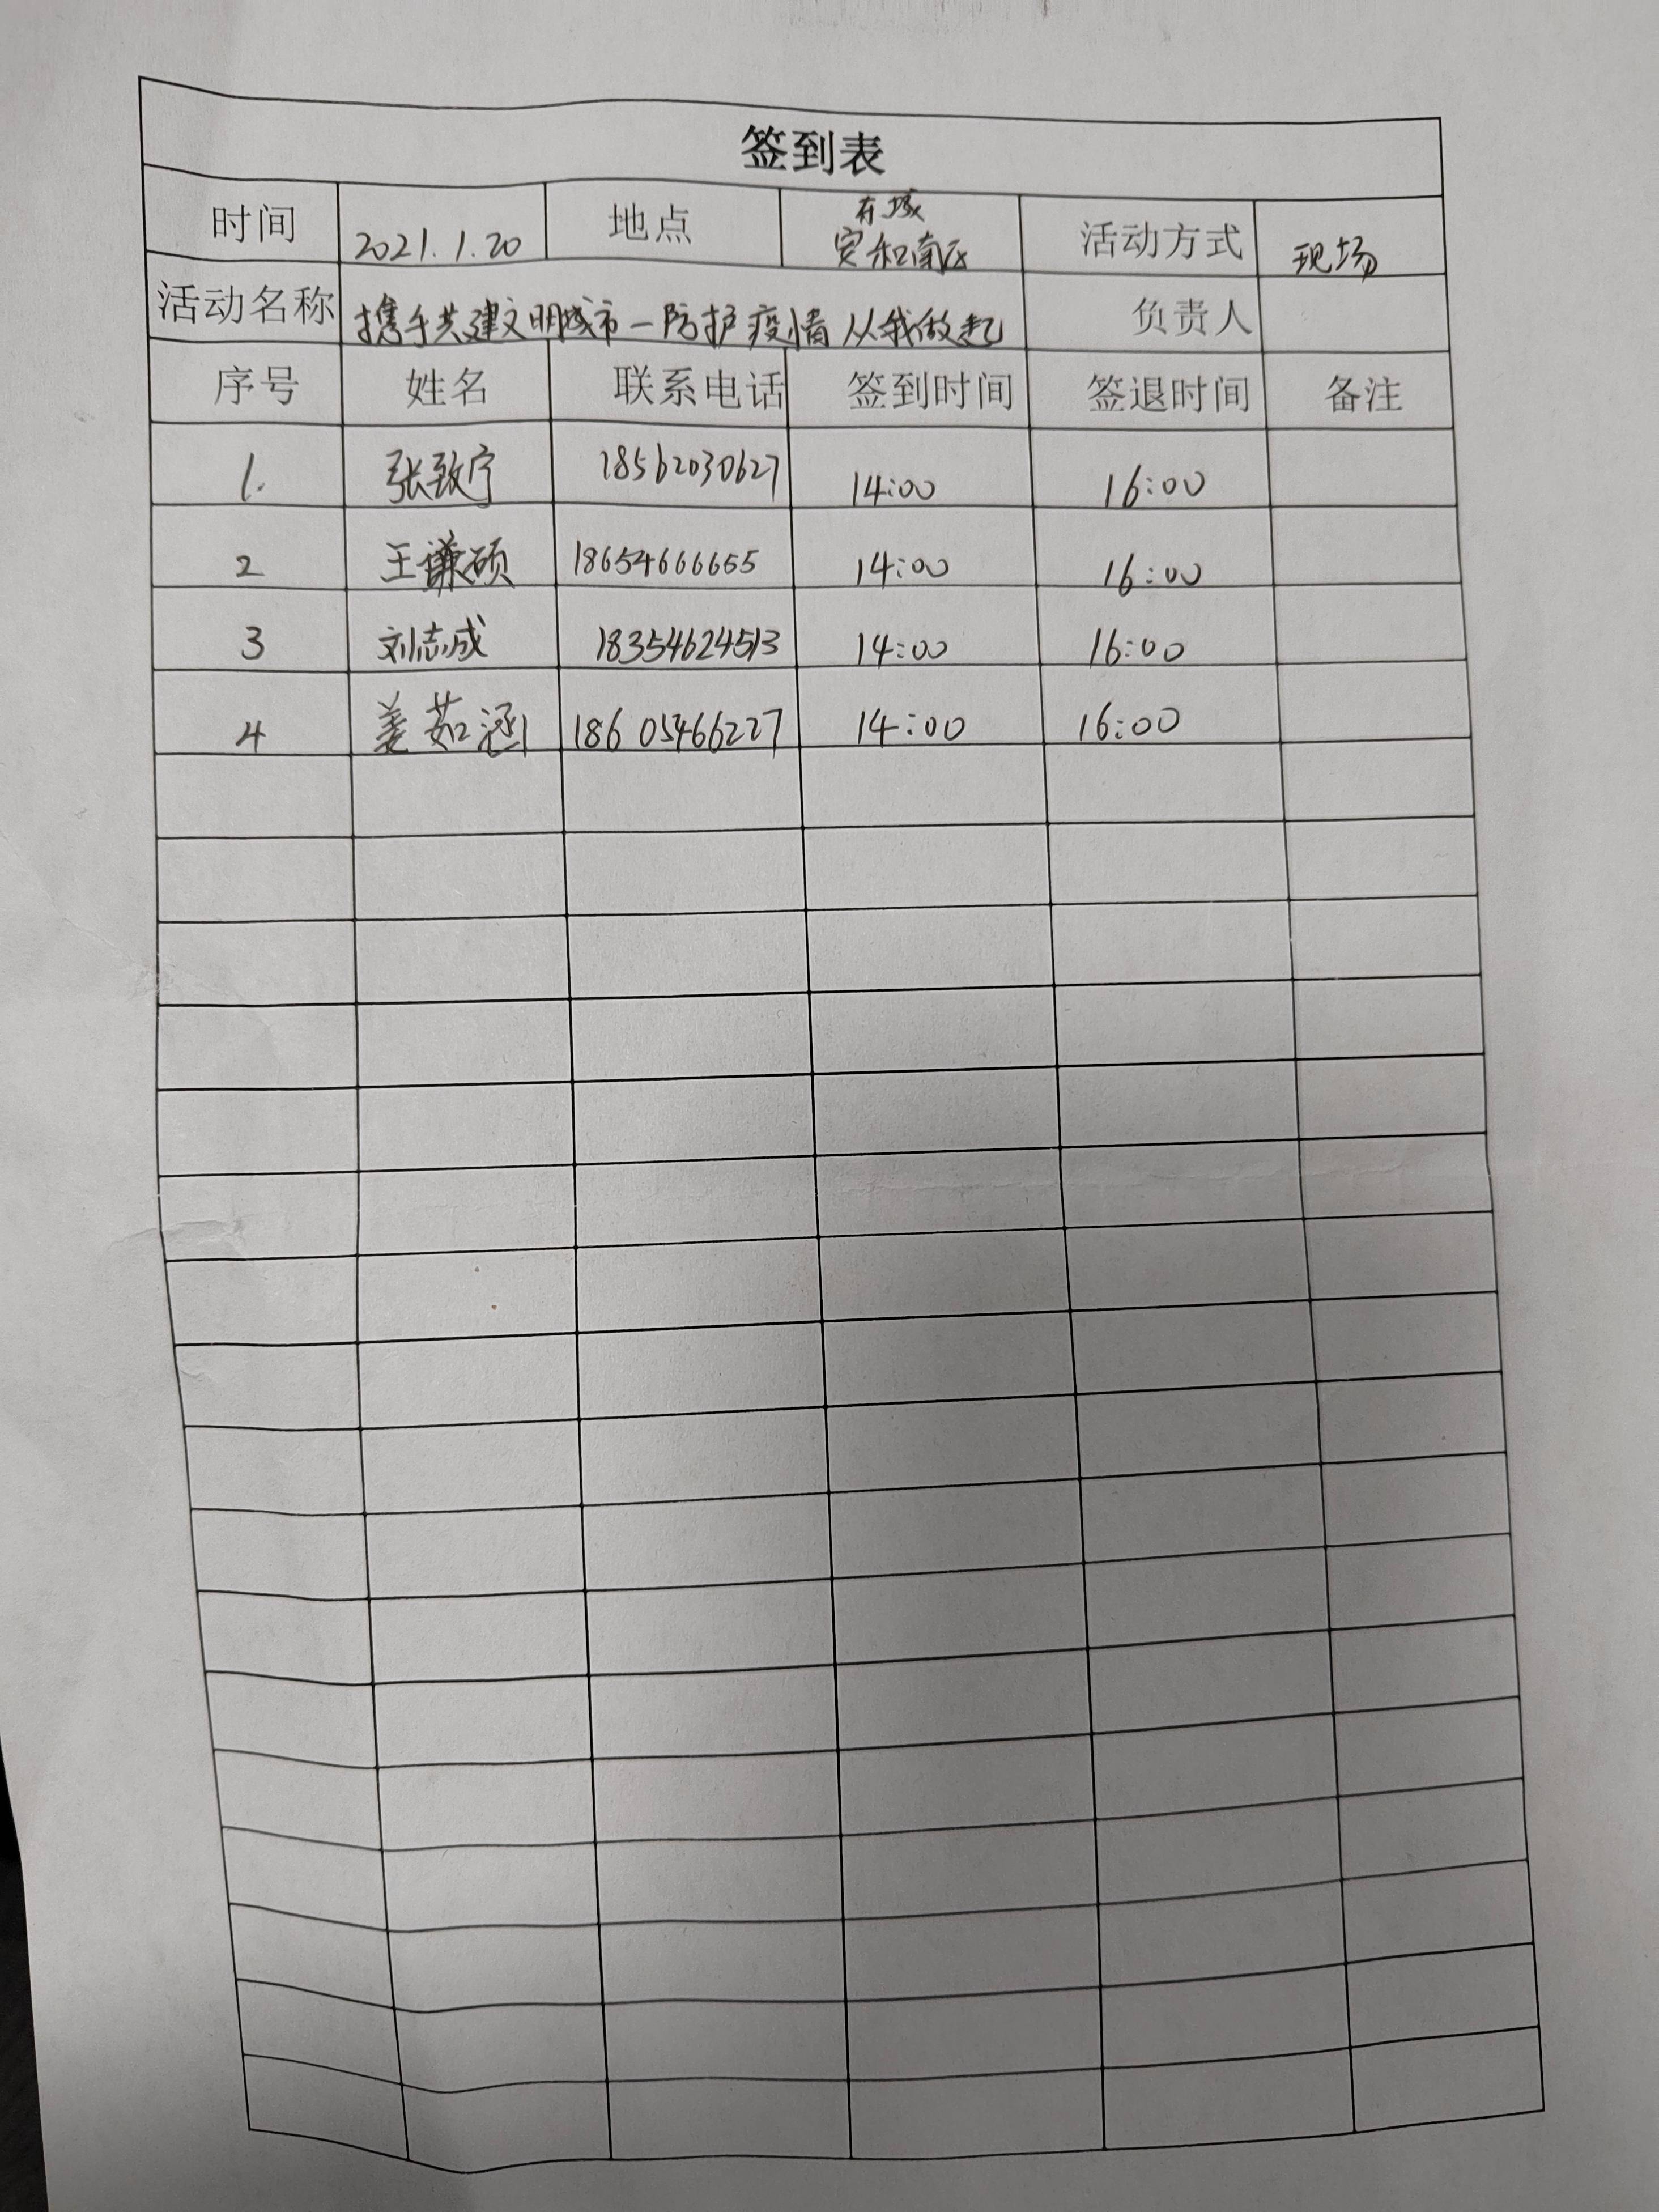 签到表
时间 2021.1.20 地点 东城 安和南区 活动方式 现场
活动名称 携手共建文明城市一防护疫情从我做起 负责人
序号 姓名 联系电话 签到时间 签退时间 备注
1. 张致宁 18562030627 14:00 16:00
2 王谦硕 18654666655 14:00 16:00
3 刘志成 18354624513 14:00 16:00
4 姜茹涵 18605466227 14:00 16:00